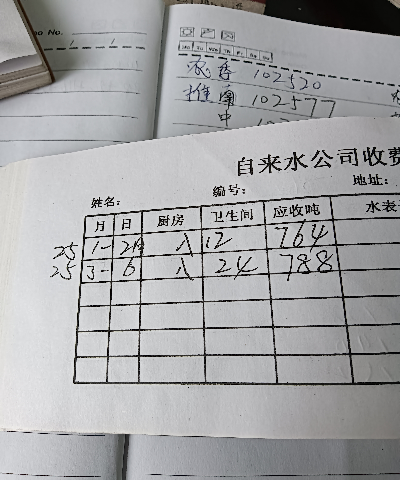 No.
Mo Tu We Th Fr Sa Su
农 102520
推 102577
中
自来水公司收费
姓名： 编号： 地址：
月 日 厨房 卫生间 应收吨 水表
25 1- 八 12 764
25 3- 6 八 24 788